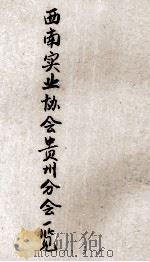 西南实业协会贵州分会一览